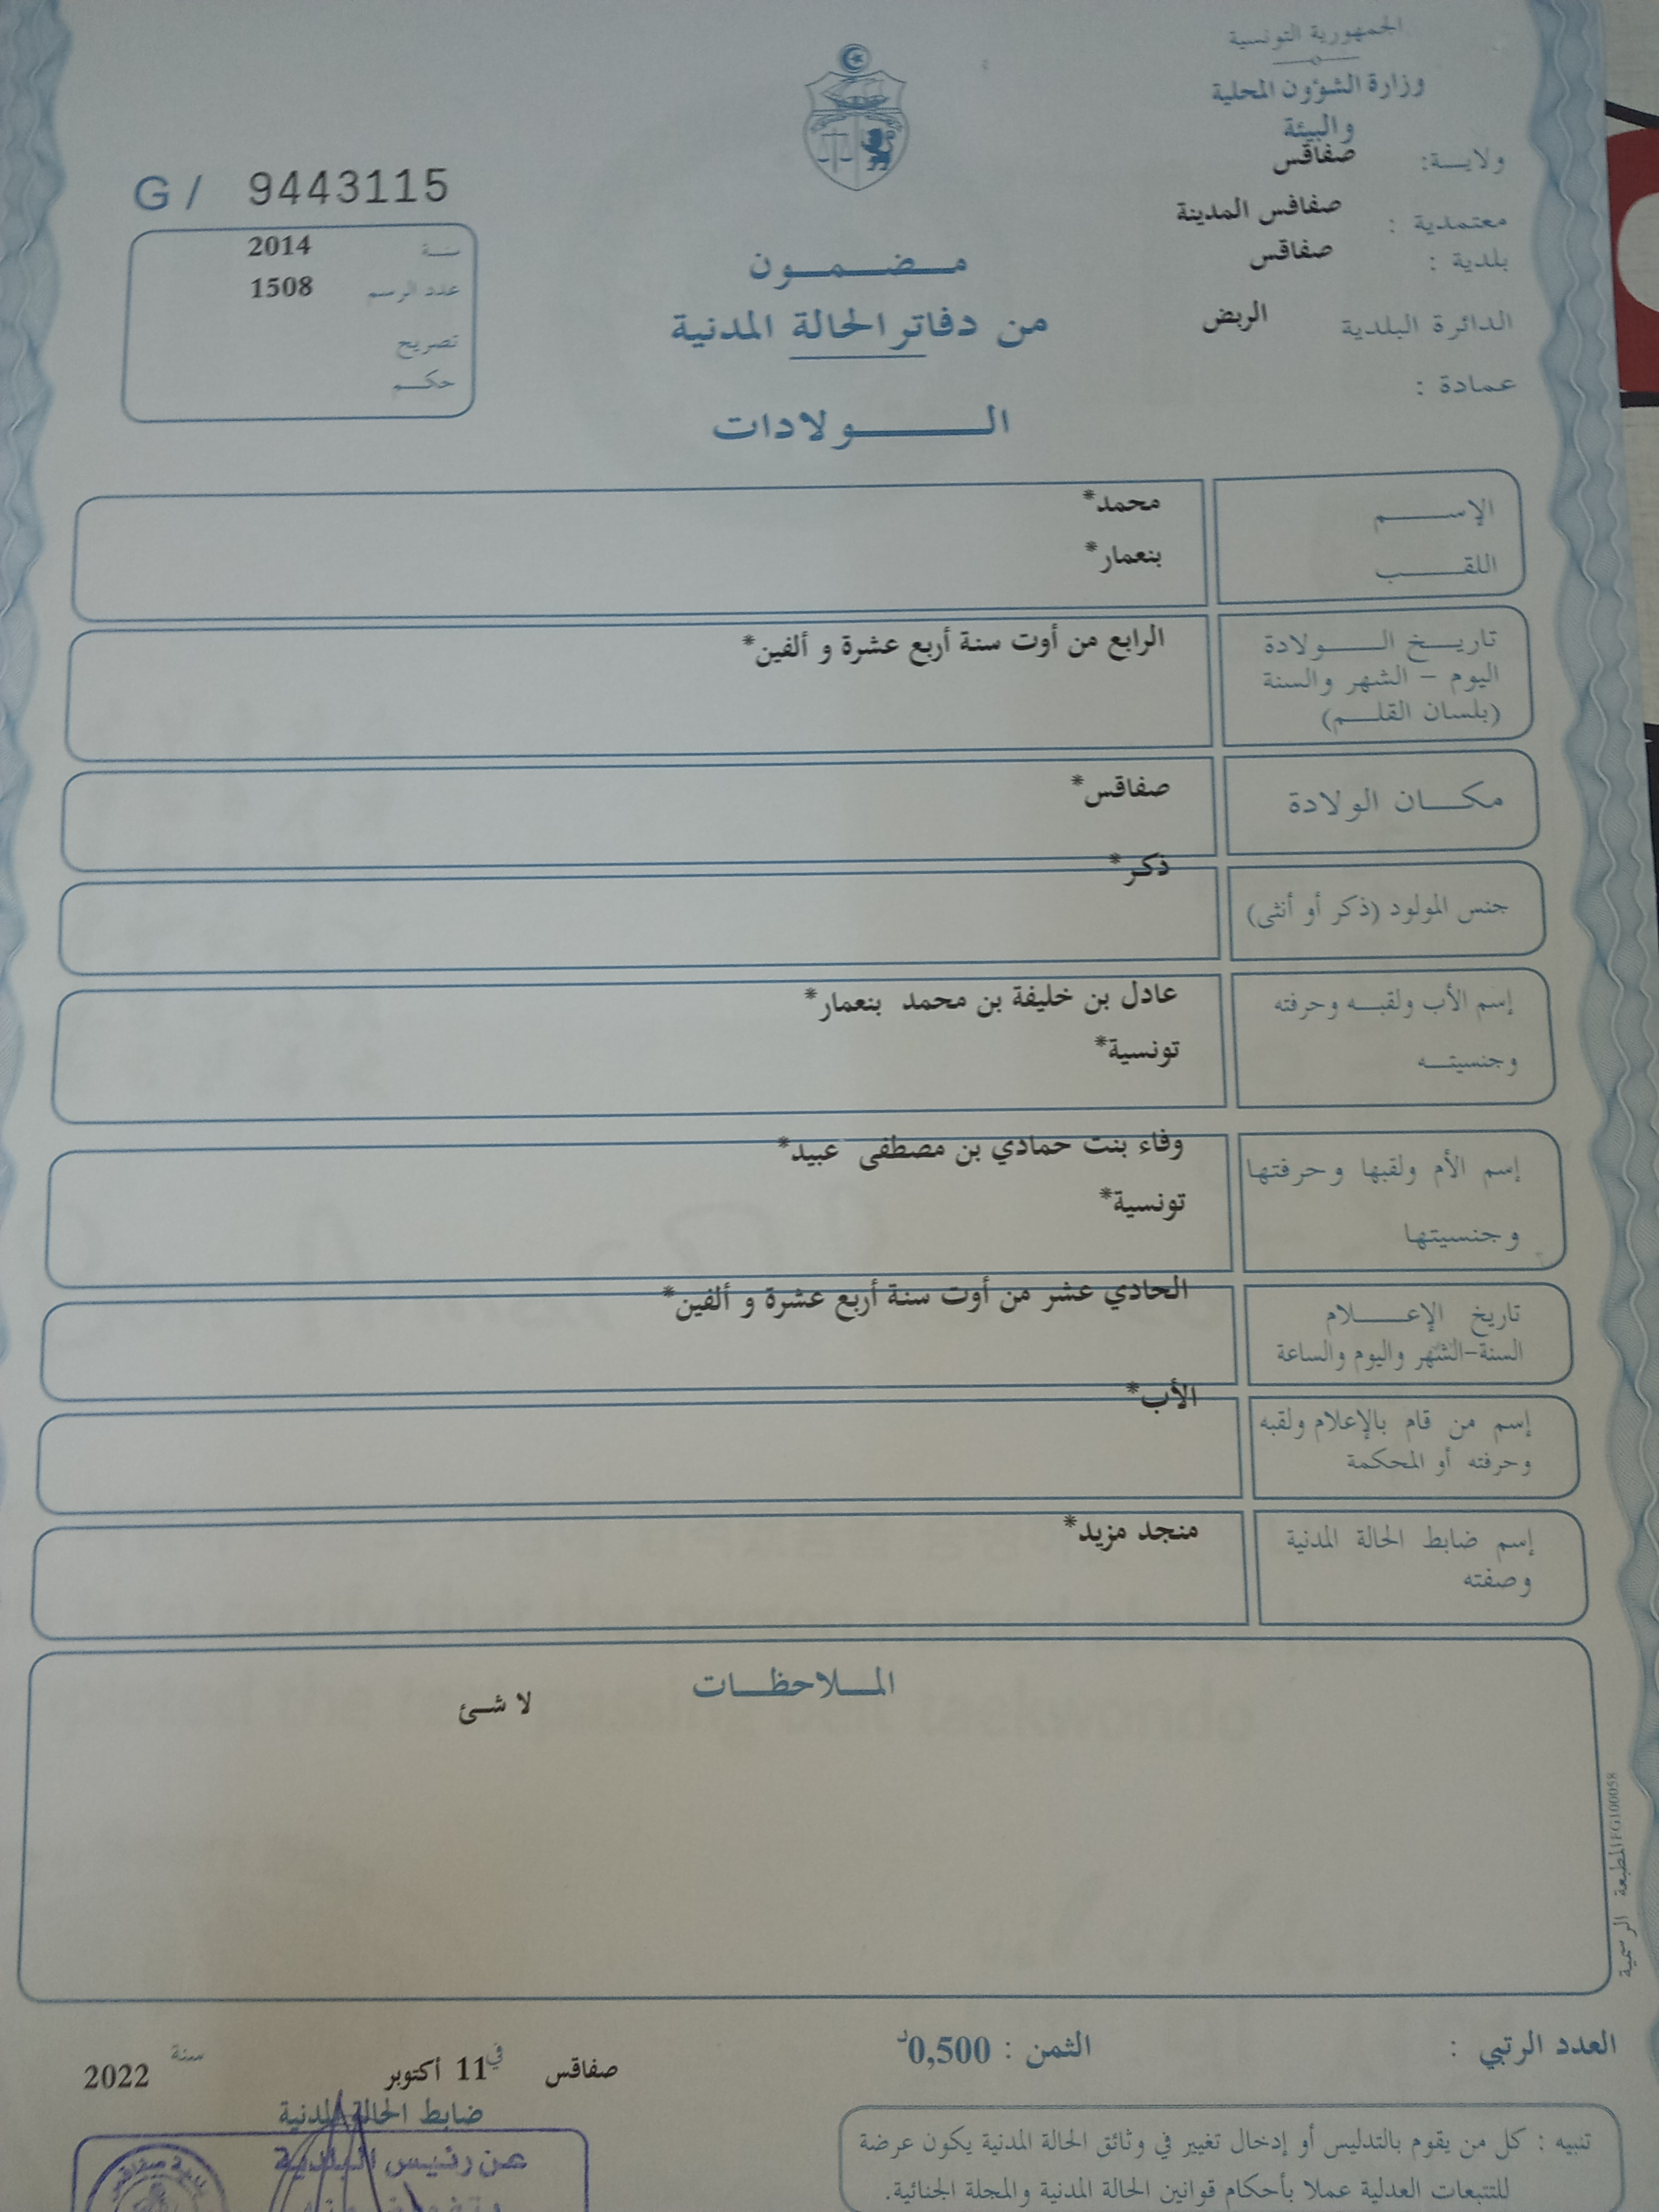 الجمهورية التونسية
وزارة الشؤون المحلية
والبيئة
ولاية: صفاقس
معتمدية : صفاقس المدينة
بلدية : صفاقس
الدائرة البلدية الربض
عمادة :
G / 9443115
سنة 2014
عدد الرسم 1508
تصريح
حكم
مضمون
من دفاتر الحالة المدنية
الولادات
الإسم محمد*
اللقب بنعمار*
تاريخ الولادة الرابع من أوت سنة أربع عشرة و ألفين*
اليوم - الشهر والسنة
(بلسان القلم)
مكان الولادة صفاقس*
جنس المولود (ذكر أو أنثى) ذكر*
إسم الأب ولقبه وحرفته عادل بن خليفة بن محمد بنعمار*
وجنسيته تونسية*
إسم الأم ولقبها وحرفتها وفاء بنت حمادي بن مصطفى عبيد*
وجنسيتها تونسية*
تاريخ الإعلام الحادي عشر من أوت سنة أربع عشرة و ألفين*
السنة-الشهر واليوم والساعة
إسم من قام بالإعلام ولقبه الأب*
وحرفته أو المحكمة
إسم ضابط الحالة المدنية منجد مزيد*
وصفته
الملاحظات
لا شئ
المطبعة الرسمية FG100058
العدد الرتبي :
الثمن : 0,500د
صفاقس في 11 أكتوبر سنة 2022
ضابط الحالة المدنية
عن رئيس البلدية
تنبيه : كل من يقوم بالتدليس أو إدخال تغيير في وثائق الحالة المدنية يكون عرضة
للتتبعات العدلية عملا بأحكام قوانين الحالة المدنية والمجلة الجنائية.